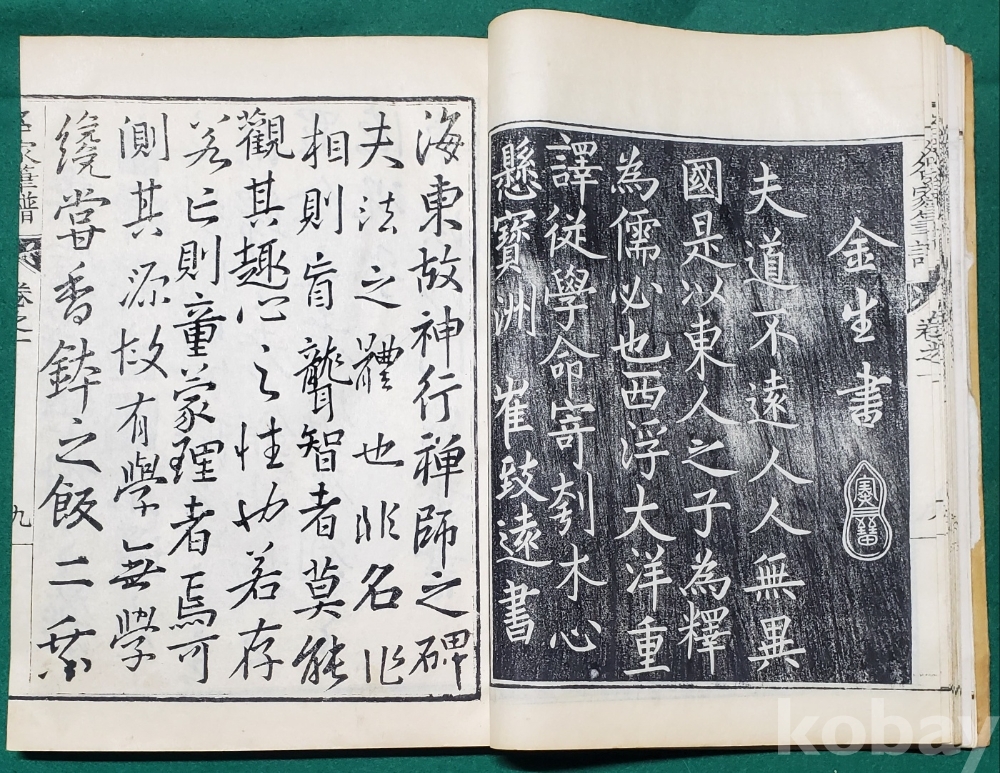 金生書
夫道不遠人人無異
國是以東人之子為釋
為儒必也西浮大洋重
譯從學命寄刳木心
懸寶洲 崔致遠書
海東故神行禅師之碑
夫法之體也非名非
相則盲聾智者莫能
觀其趣心之性也若存
若亡則童蒙理者焉可
側其源故有學無學
纔甞香鉢之飯二乘
家筆譜 卷之一 九
kobay